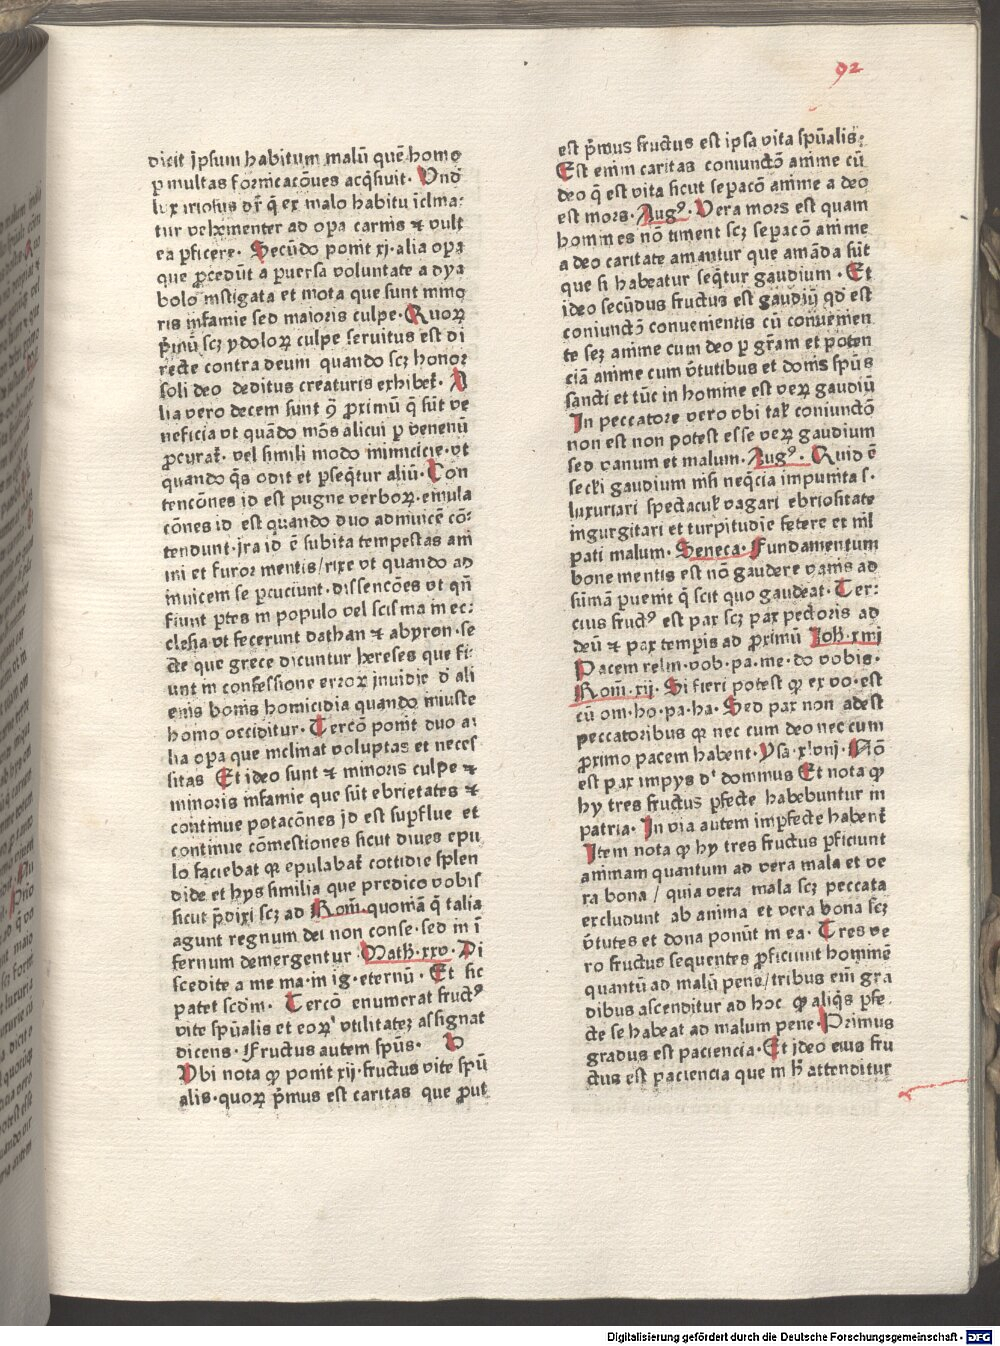 92
dicit jpsum habitum malū quē homo
p multas fornicacōnes acq̄siuit. Vnd̄
luxuriosus dr̄ q̄ ex malo habitu īclina
tur vehementer ad opa carnis ⁊ vult
ea pficere. Secūdo ponit xj. alia opa
que p̄cedūt a puersa voluntate a dya
bolo instigata et mota que sunt mino
ris infamie sed maioris culpe. Quoꝝ
p̄mū scꝫ ydoloꝝ culpe seruitus est di
recte contra deum quando scꝫ honor
soli deo deditus creaturis exhibet̄. A
lia vero decem sunt ꝯ̄ proximū q̄ sūt ve
neficia vt quādo mōs alicui p venenū
pcurat̄. vel simili modo inimicicie. vt
quando q̄s odit et pseq̄tur aliū. Con
tencōnes id est pugne verboꝝ. emula
cōnes id est quando duo adinuicē cō:
tendunt. jra id ē subita tempestas ani
mi et furor mentis/rixe vt quando ad
inuicem se pcuciunt. dissencōes vt qn̄
fiunt ptes in populo vel scisma in ec:
clesia vt fecerunt dathan ⁊ abyron. se
cte que grece dicuntur hereses que fi:
unt in confessione erroꝝ inuidie d̄ ali
enis bonis homicidia quando iniuste
homo occiditur. Tercō ponit duo a:
lia opa que inclinat voluptas et neces
sitas Et ideo sunt ⁊ minoris culpe ⁊
minoris infamie que sūt ebrietates ⁊
continue potacōnes jd est supflue et
continue cōmestiones sicut diues epu
lo faciebat qꝛ epulabat̄ cottidie splen
dide et hys similia que predico vobis
sicut p̄dixi scꝫ ad Rom̄. quoniā q̄ talia
agunt regnum dei non conse. sed in ī
fernum demergentur Math̄. xxv. Di
scedite a me ma. in ig. eternū. Et sic
patet scd̄m. Tercō enumerat fruct⁹
vite spūalis et eoꝝ vtilitatē assignat
dicens. Fructus autem spūs. V
Vbi nota ꝙ ponit xij. fructus vite spū
alis. quoꝝ p̄mus est caritas que put
est p̄mus fructus est ipsa vita spūalis:
Est enim caritas coniunctō anime cū
deo q̄ est vita sicut sepacō anime a deo
est mors. Aug⁹. Vera mors est quam
homines nō timent scꝫ sepacō anime
a deo caritate amantur que amāda sūt
que si habeatur seq̄tur gaudium. Et
ideo secūdus fructus est gaudiū qd̄ est
coniunctō conuenientis cū conuenien
te scꝫ anime cum deo p grām et poten
ciā anime cum v̄tutibus et donis spūs
sancti et tūc in homine est veꝝ gaudiū
In peccatore vero vbi tal̄ coniunctō
non est non potest esse veꝝ gaudium
sed vanum et malum. Aug⁹. Quid ē
seculi gaudium nisi neq̄cia impunita s.
luxuriari spectacul̄ vagari ebriositate
ingurgitari et turpitudīe fetere et nil̄
pati malum. Seneca. Fundamentum
bone mentis est nō gaudere vanis ad
sūmā puenit q̄ scit quo gaudeat. Ter:
cius fruct⁹ est pax scꝫ pax pectoris ad
deū ⁊ pax tempis ad proximū Joh̄. xiiij
Pacem relin. vob. pa. me. do vobis.
Rom̄. xij. Si fieri potest ꝙ ex vo. est
cū om. ho. pa. ha. Sed pax non adest
peccatoribus qꝛ nec cum deo nec cum
proximo pacem habent. Ysa. xlviij. Nō
est pax impys d̓ dominus Et nota ꝙ
hy tres fructus pfecte habebuntur in
patria. In via autem impfecte habent̄
Item nota ꝙ hy tres fructus pficiunt
animam quantum ad vera mala et ve
ra bona / quia vera mala scꝫ peccata
excludunt ab anima et vera bona scꝫ
v̄tutes et dona ponūt in ea. Tres ve
ro fructus sequentes pficiunt hominē
quantū ad malū pene/tribus em̄ gra
dibus ascenditur ad hoc ꝙ aliq̄s pfe.
cte se habeat ad malum pene. Primus
gradus est paciencia. Et ideo eius fru
ctus est paciencia que in h̄ attenditur
Digitalisierung gefördert durch die Deutsche Forschungsgemeinschaft - DFG